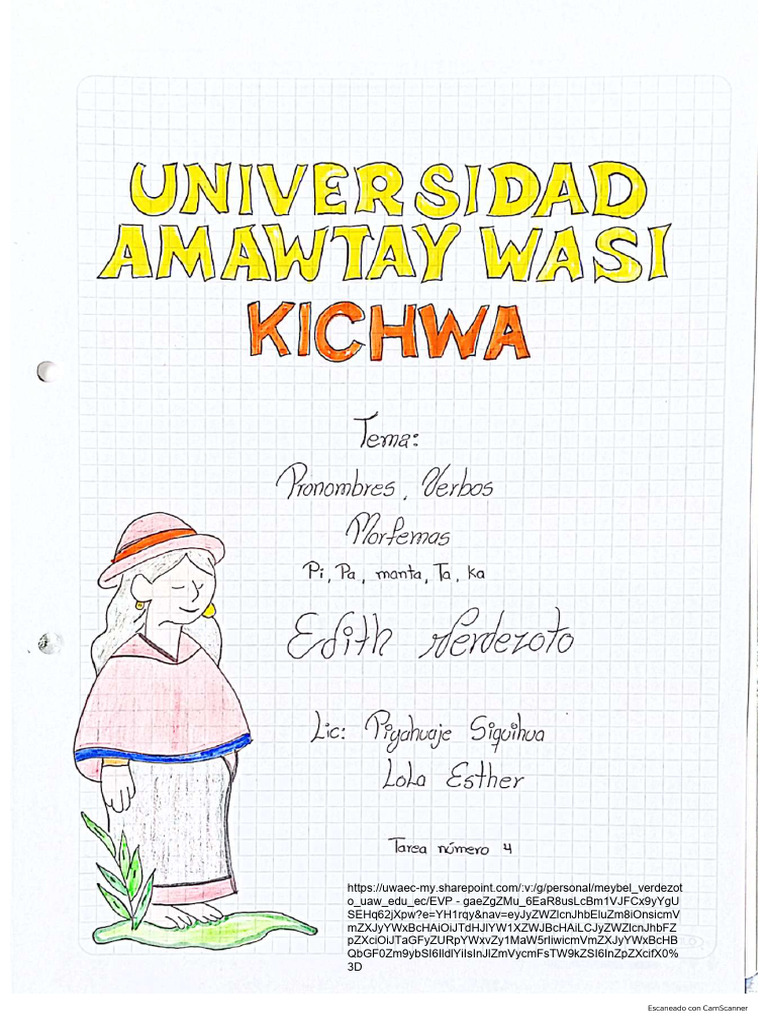 UNIVERSIDAD
AMAWTAY WASI
KICHWA
Tema:
Pronombres, Verbos
Morfemas
Pi, Pa, manta, Ta, ka
Edith Verdezoto
Lic: Piyahuaje Siquihua
Lola Esther
Tarea número 4
https://uwaec-my.sharepoint.com/:v:/g/personal/meybel_verdezot
o_uaw_edu_ec/EVP - gaeZgZMu_6EaR8usLcBm1VJFCx9yYgU
SEHq62jXpw?e=YH1rqy&nav=eyJyZWZlcnJhbEluZm8iOnsicmV
mZXJyYWxBcHAiOiJTdHJlYW1XZWJBcHAiLCJyZWZlcnJhbFZ
pZXciOiJTaGFyZURpYWxvZy1MaW5rIiwicmVmZXJyYWxBcHB
QbGF0Zm9ybSI6IldlYiIsInJlZmVycmFsTW9kZSI6InZpZXcifX0%
3D
Escaneado con CamScanner